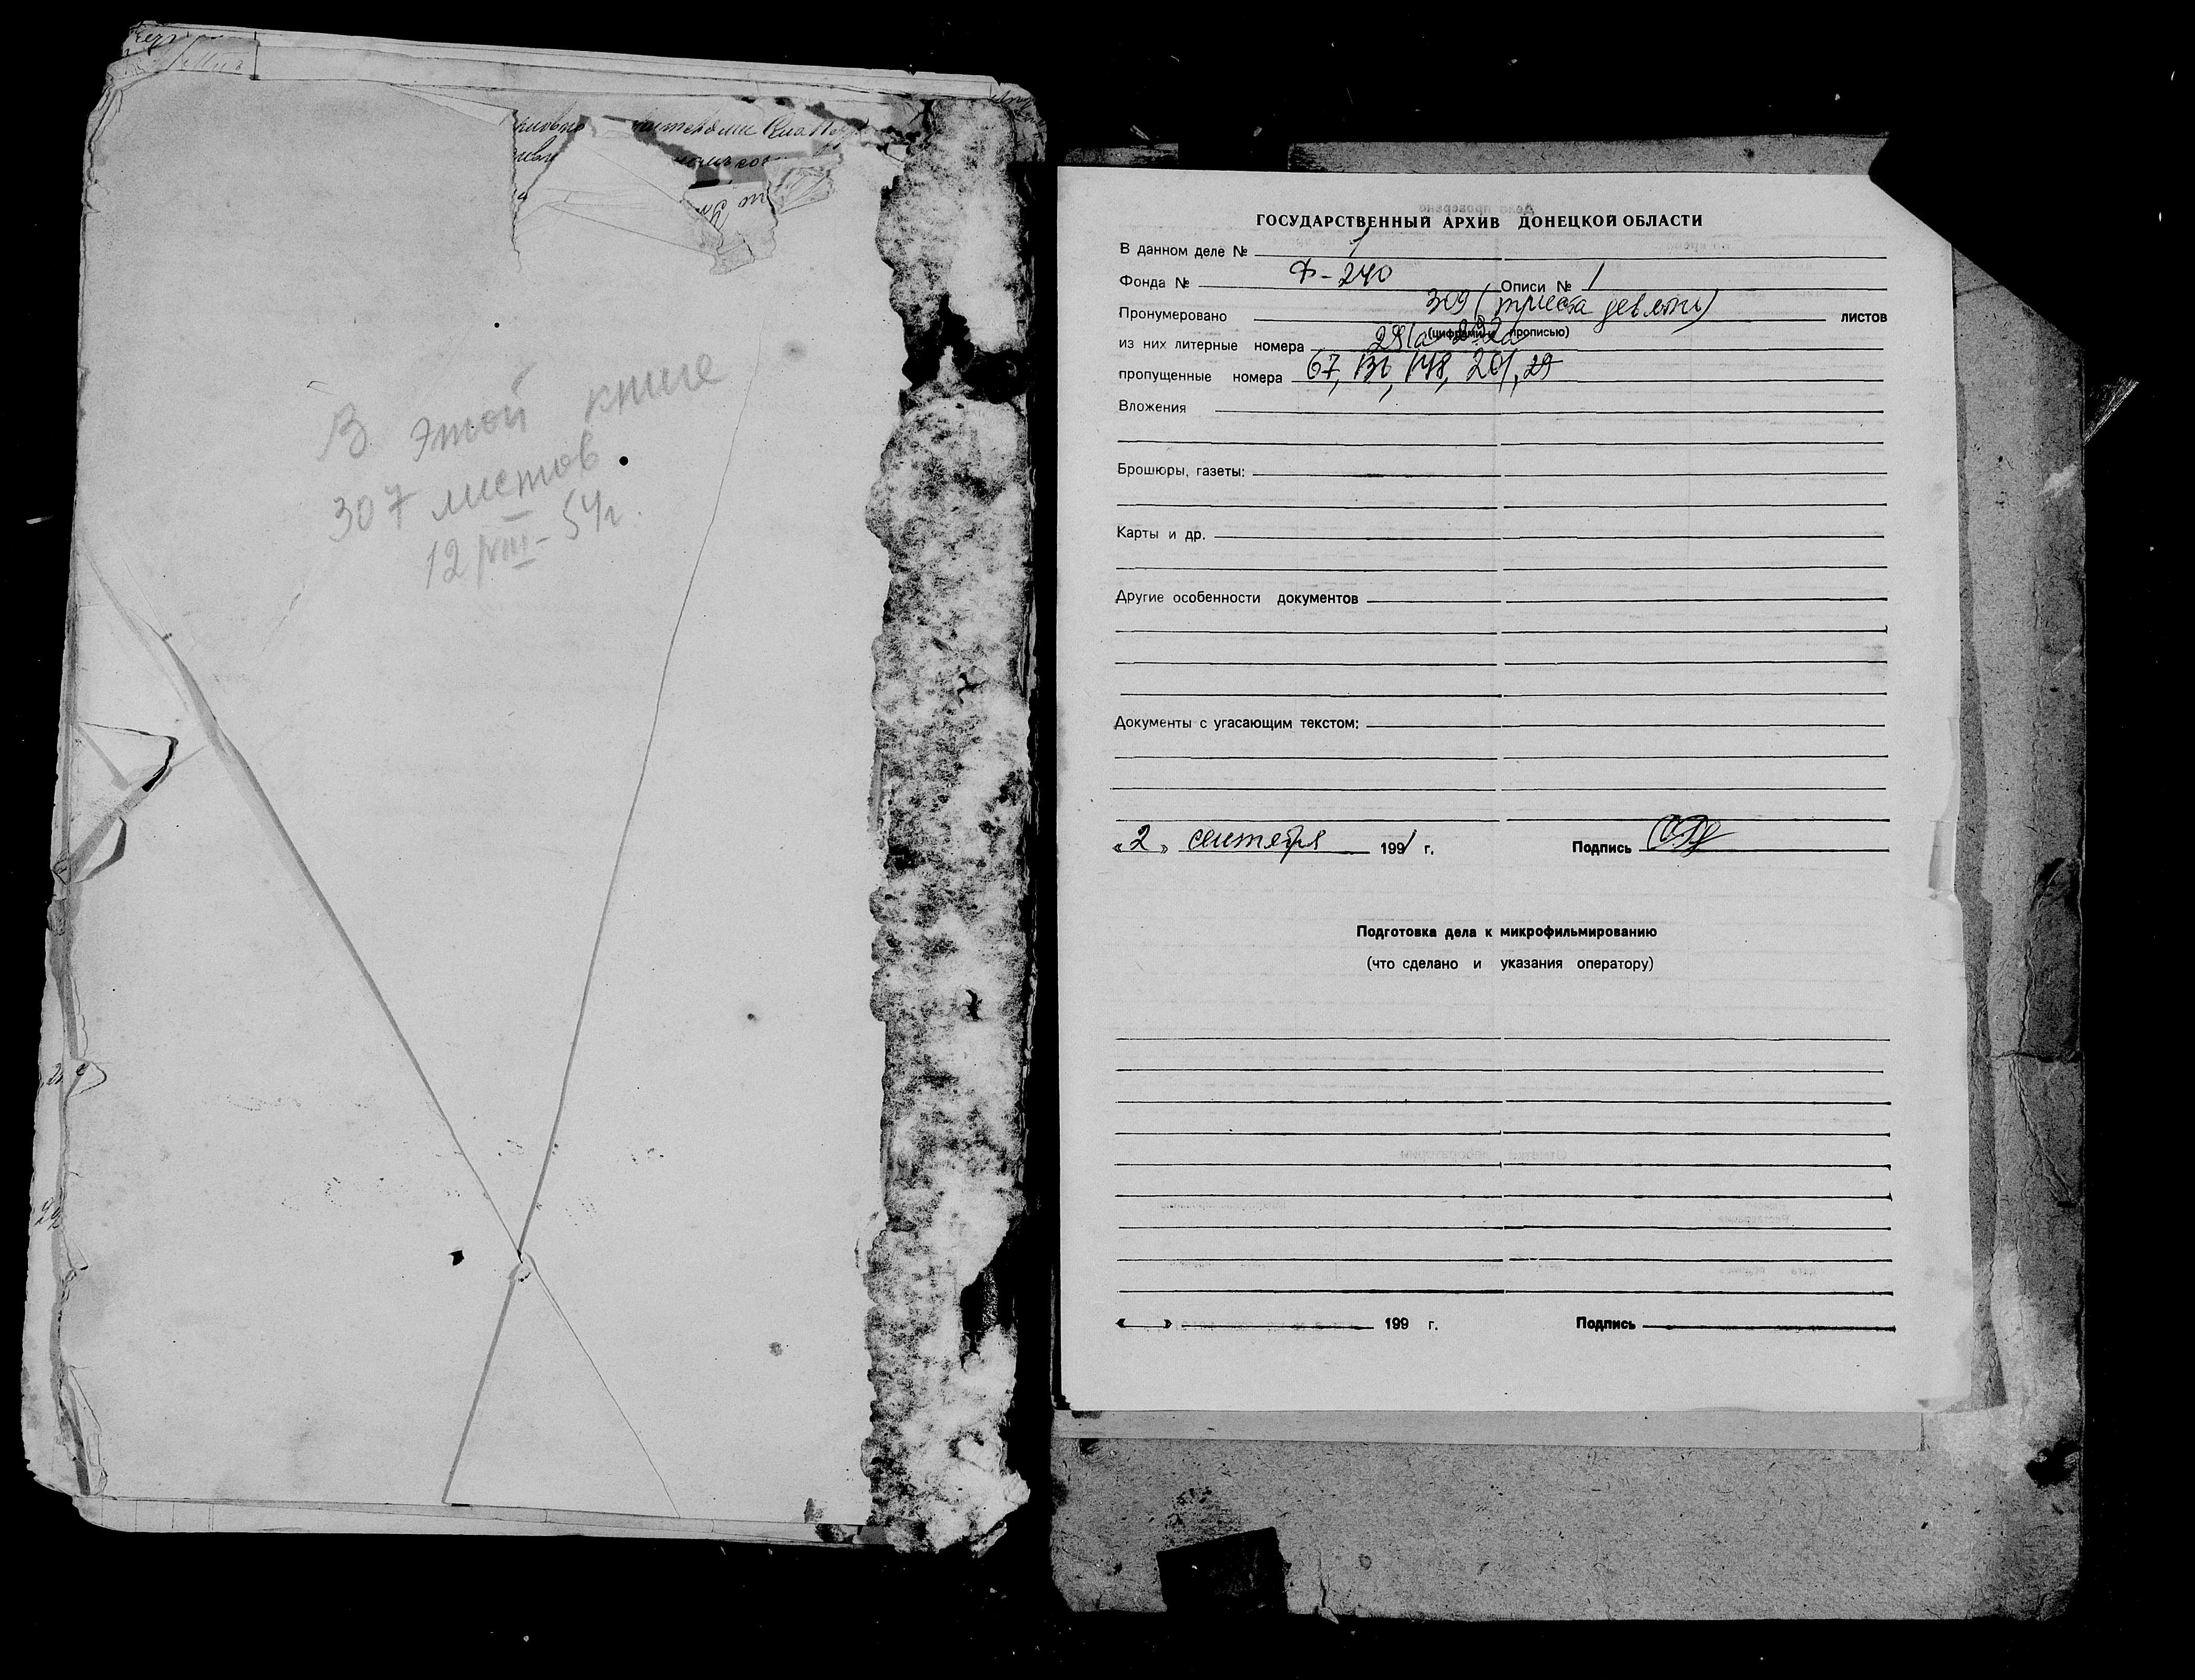 В этой книге
307 листов
12/VIII-54г.
ГОСУДАРСТВЕННЫЙ АРХИВ ДОНЕЦКОЙ ОБЛАСТИ
В данном деле № 1
Фонда № Ф-240 Описи № 1
Пронумеровано 309 (триста девять) листов
(цифрами и прописью)
из них литерные номера
пропущенные номера 67, 136, 148, 201,
Вложения
Брошюры, газеты:
Карты и др.
Другие особенности документов
Документы с угасающим текстом:
«2» сентября 1991 г. Подпись
Подготовка дела к микрофильмированию
(что сделано и указания оператору)
« » 199 г. Подпись